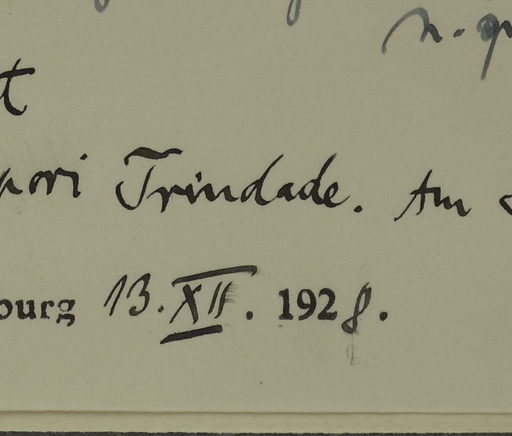 t
pori Trindade. Am
bourg 13.XII. 1928.